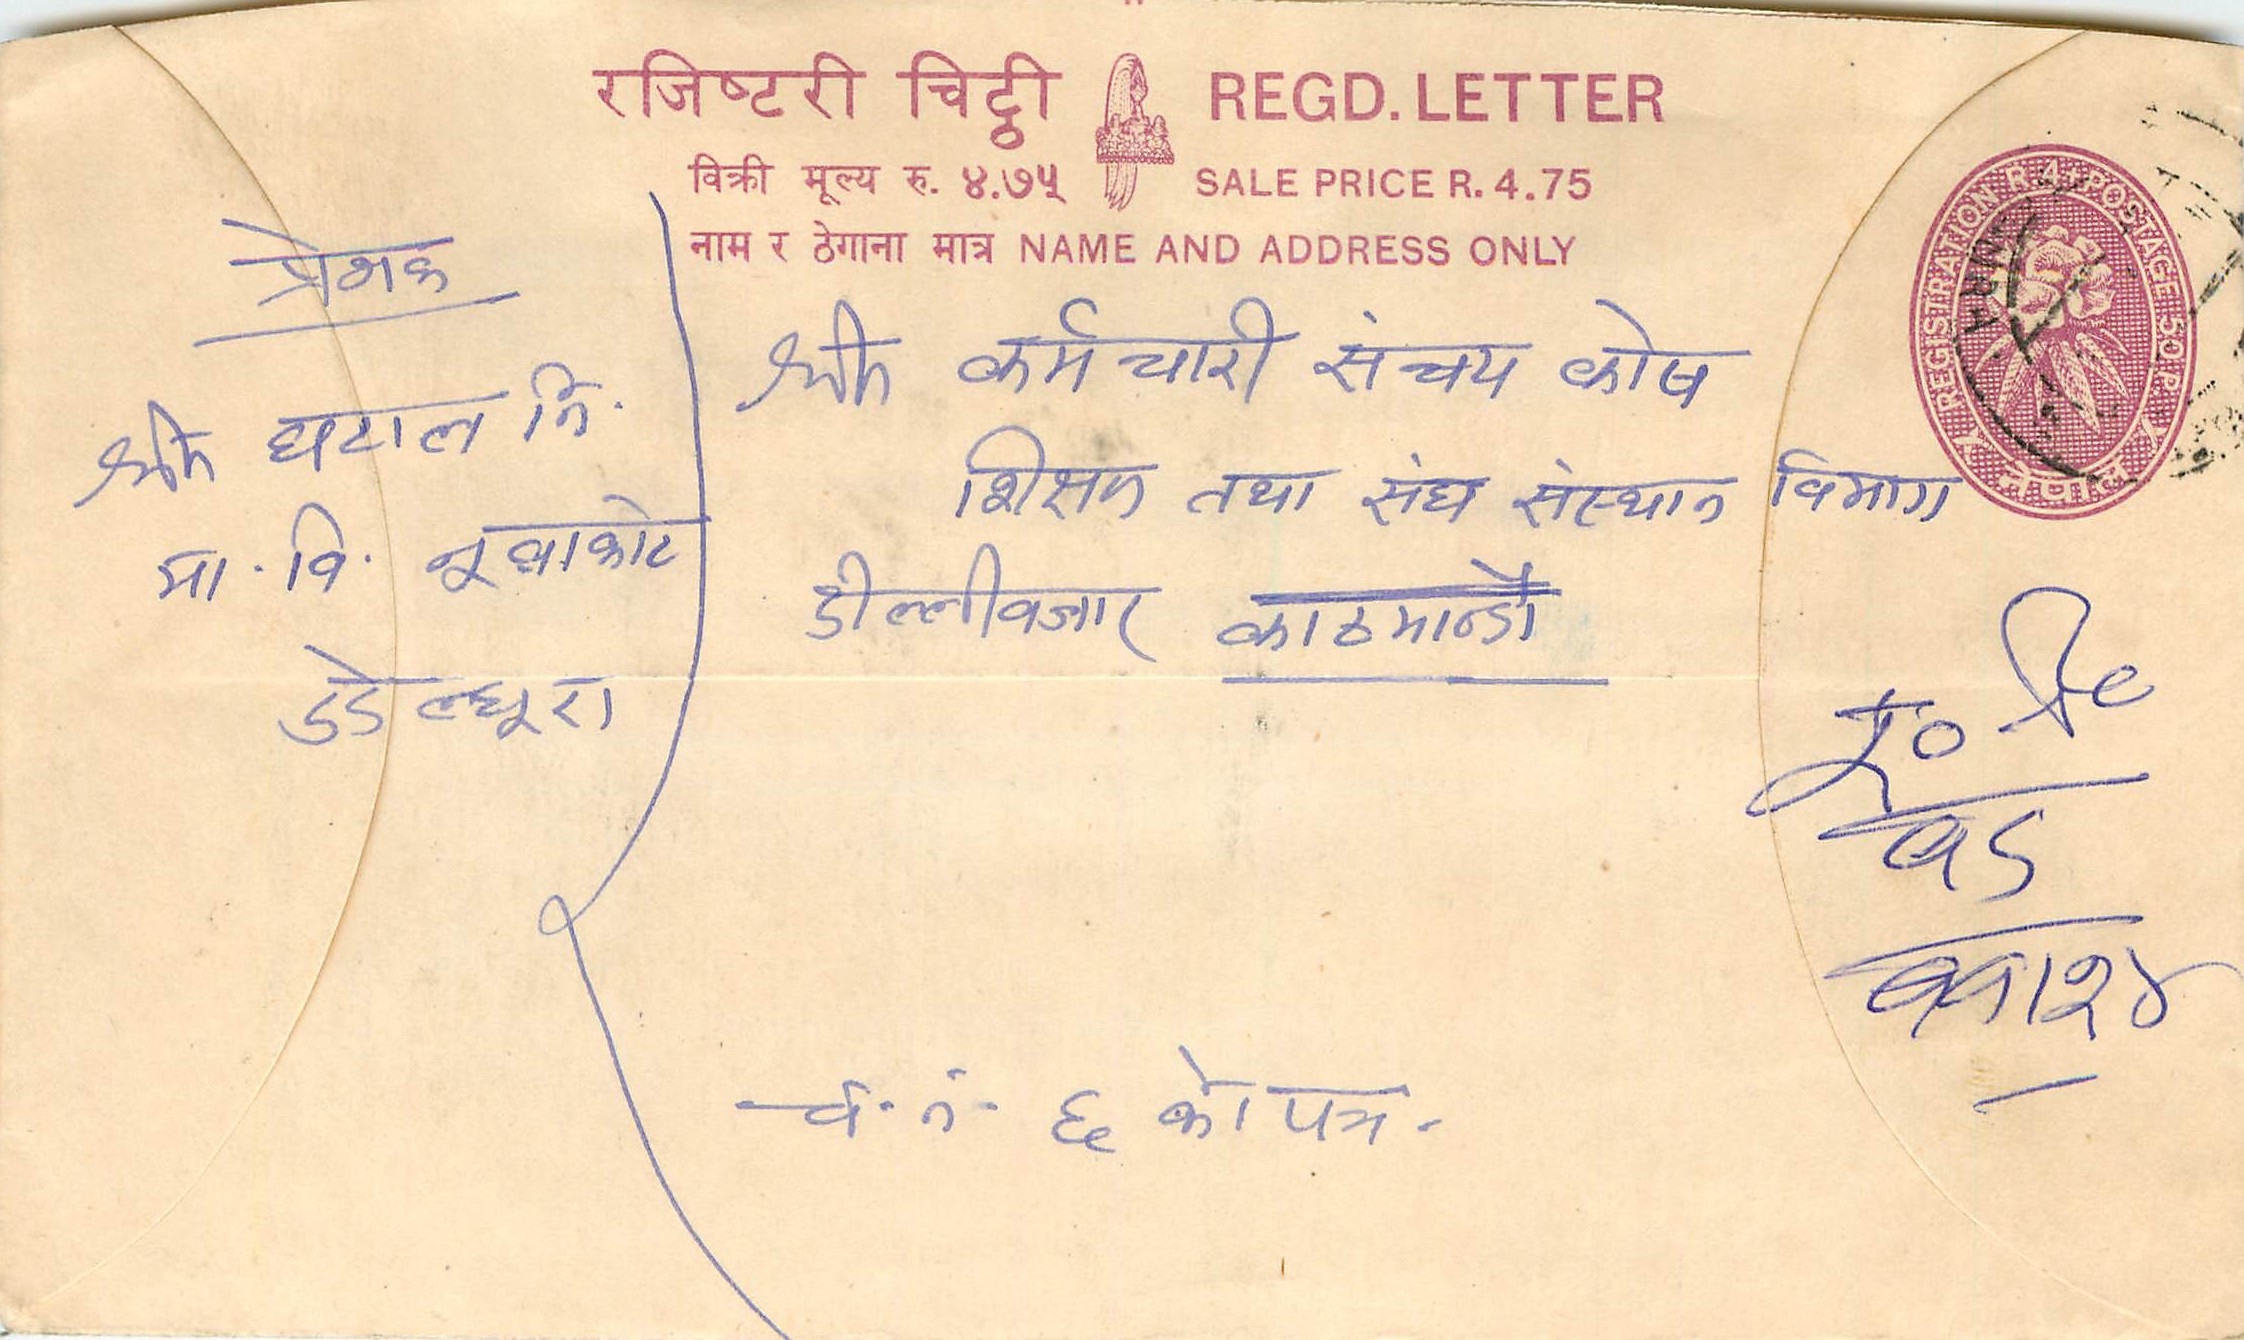 रजिष्टरी चिट्ठी REGD. LETTER
विक्री मूल्य रु. ४.७५ SALE PRICE R. 4.75
नाम र ठेगाना मात्र NAME AND ADDRESS ONLY
REGISTRATION R 4 + POSTAGE 50 P.
नेपाल
प्रेषक
श्री घटाल नि.
मा. वि. नूवाकोट
डडेल्धूरा
श्री कर्मचारी संचय कोष
शिक्षण तथा संघ संस्थान विभाग
डील्लीवजार काठमान्डौ
च. नं. ६ को पत्र.